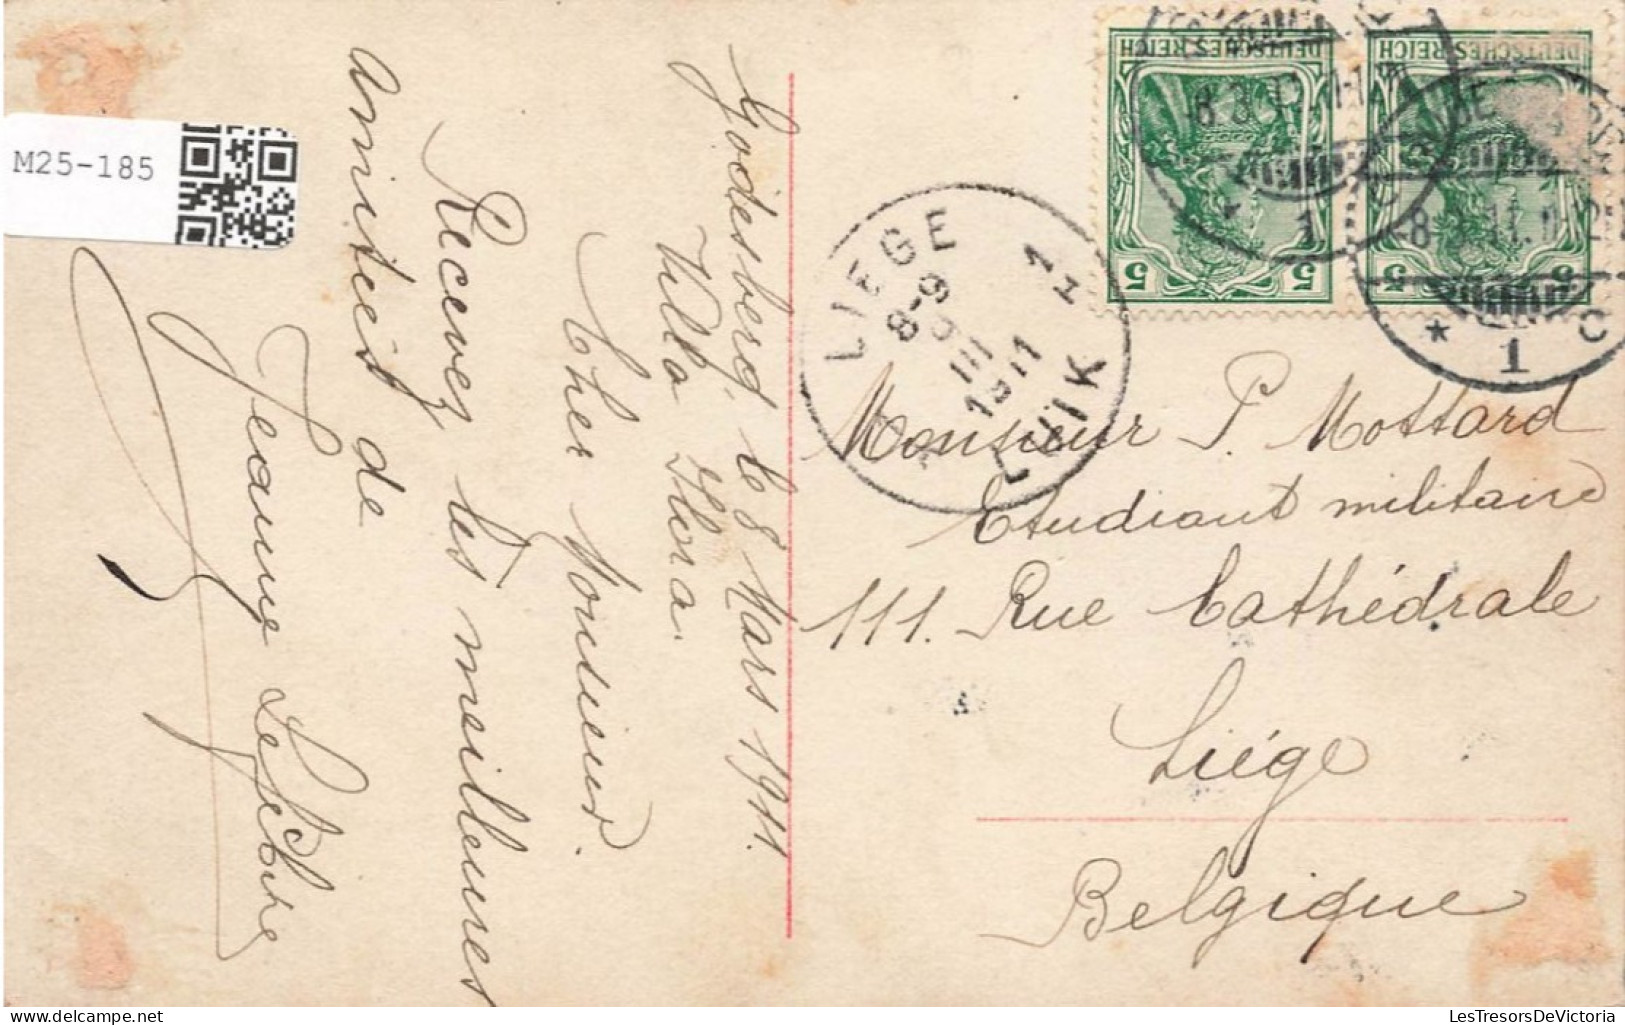 M25-185
Godesberg, le 8 Mars 1911.
Villa Flora.
Cher Monsieur.
Recevez les meilleures
amitiés de
Jeanne
DEUTSCHES REICH
5
DEUTSCHES REICH
5
LIEGE
8-9
9
III
1911
LUIK
Monsieur P. Mottard
Etudiant militaire
111. Rue Cathédrale
Liége
Belgique
LesTresorsDeVictoria